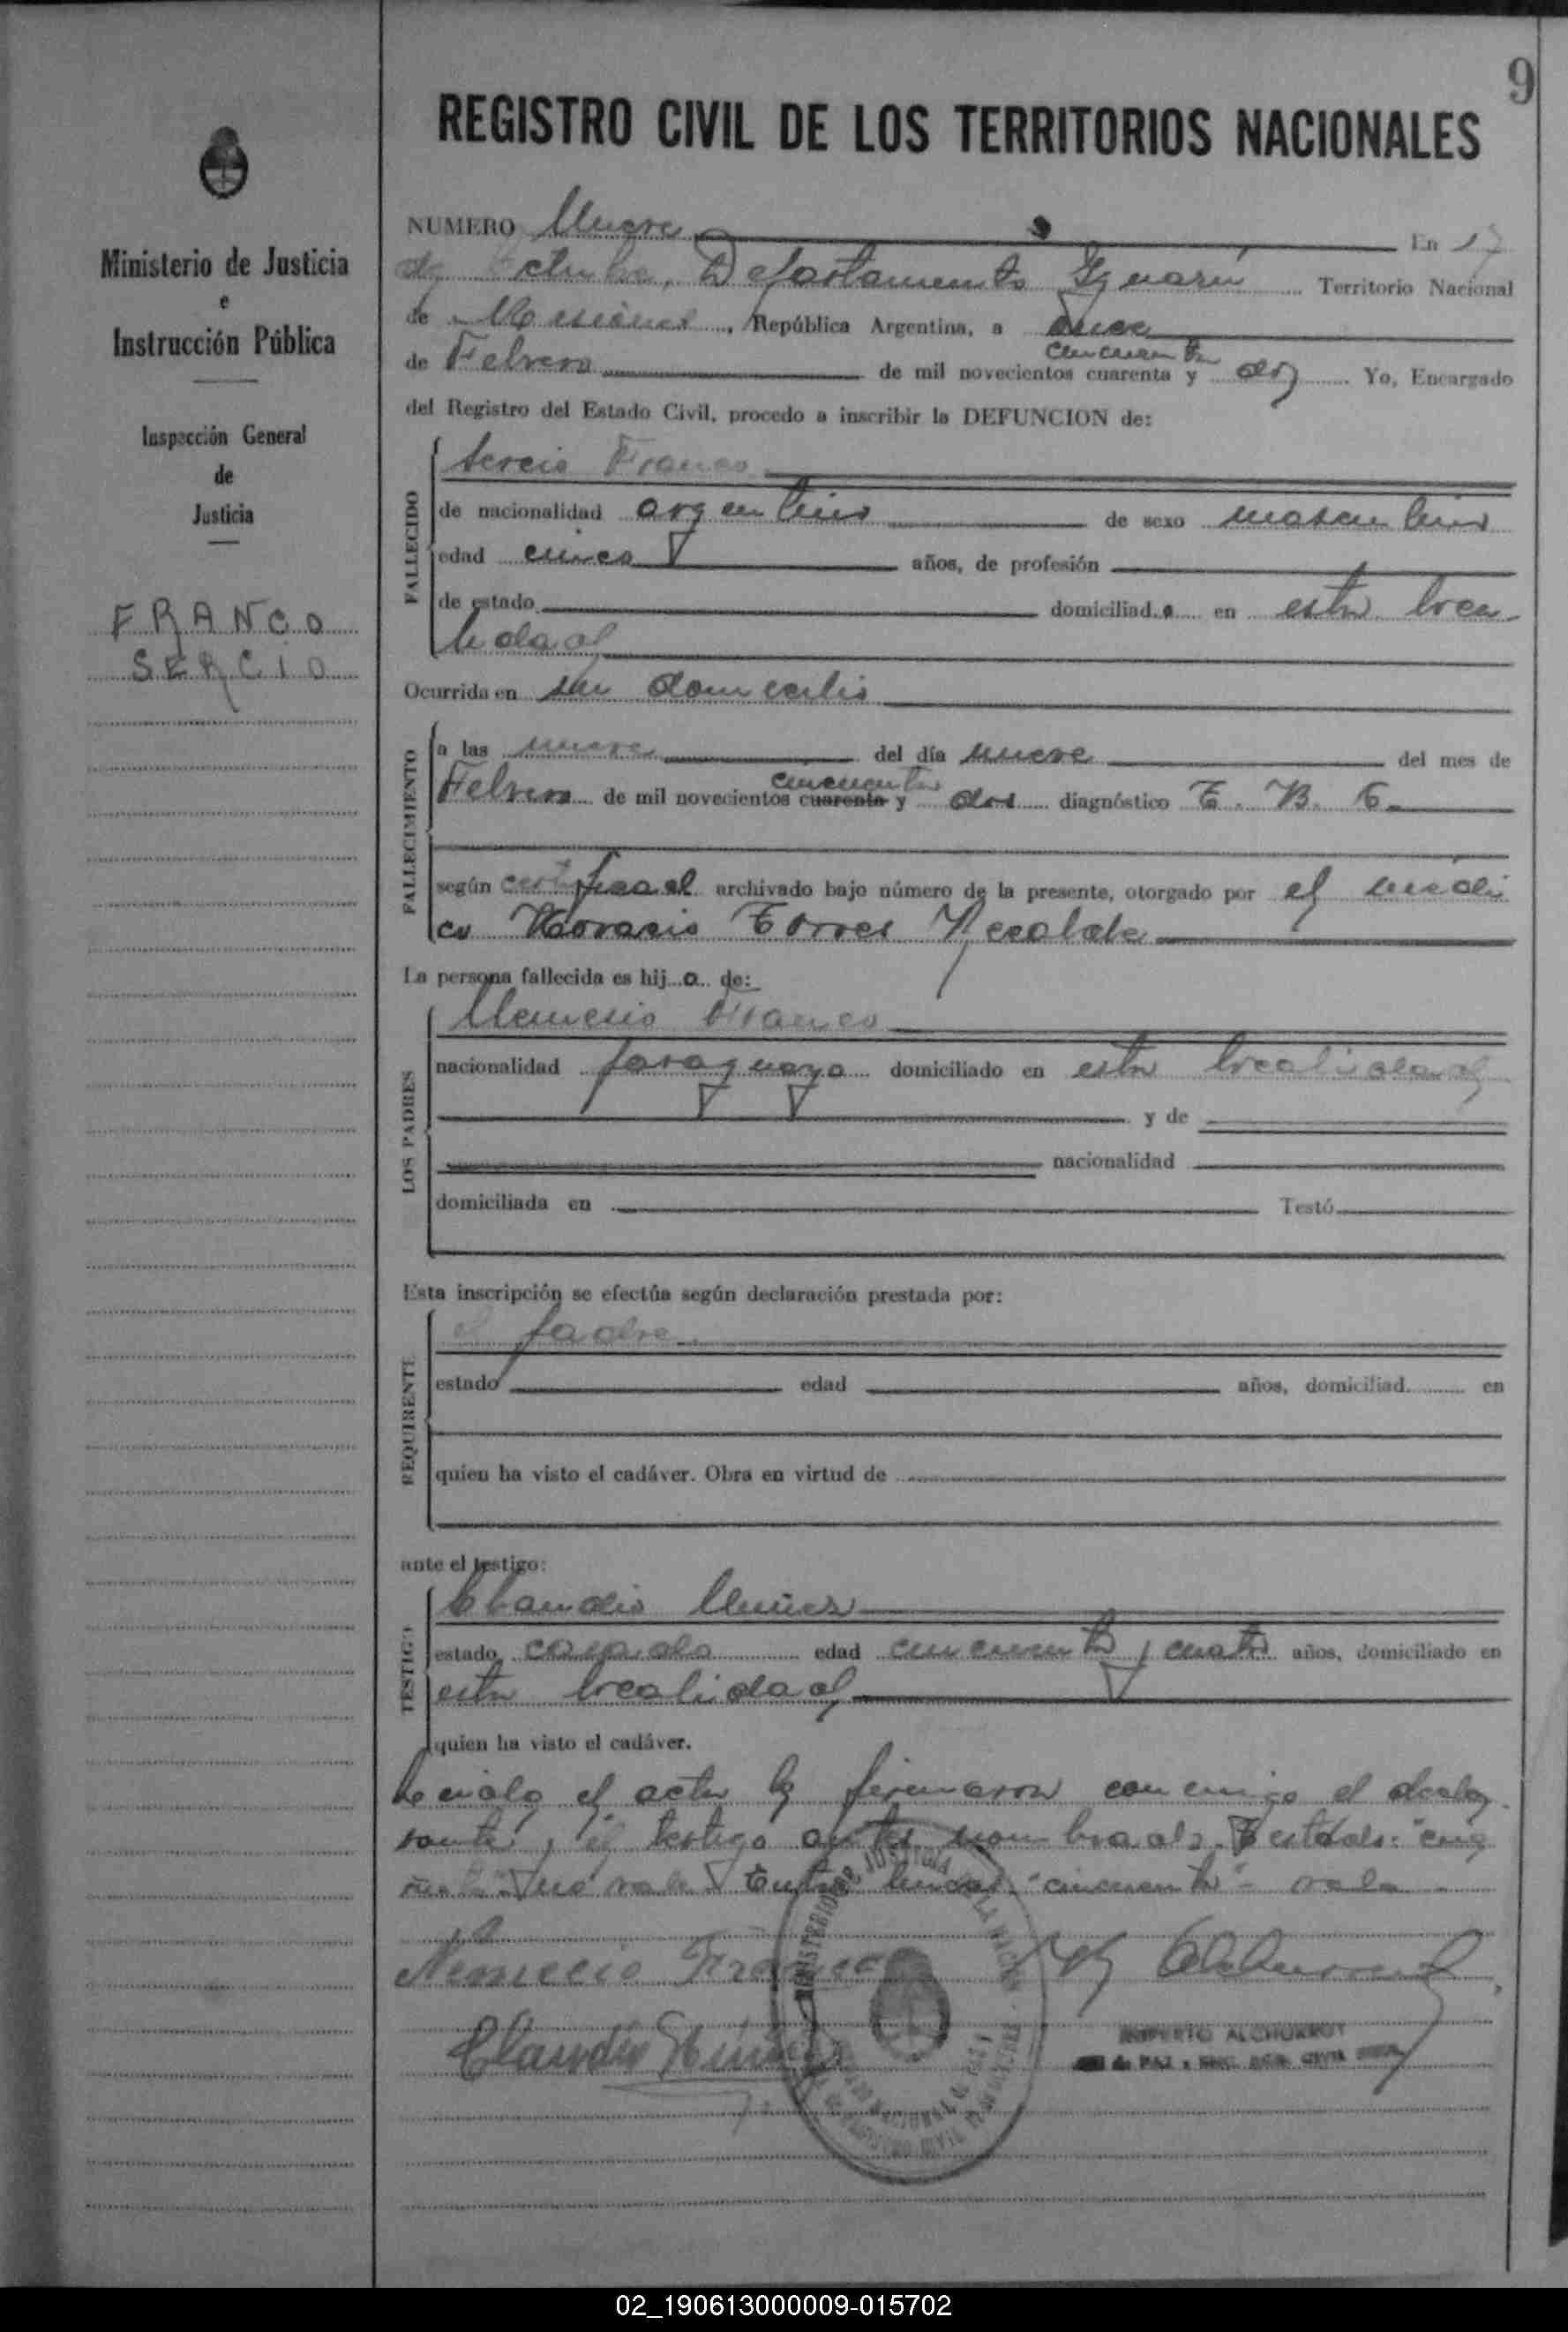 9
REGISTRO CIVIL DE LOS TERRITORIOS NACIONALES
Ministerio de Justicia
e
Instrucción Pública
Inspección General
de
Justicia
FRANCO
SERCIO
NUMERO Nueve En 17
de Octubre, Departamento Iguazú Territorio Nacional
de Misiones, República Argentina, a once
cincuenta
de Febrero de mil novecientos cuarenta y dos Yo, Encargado
del Registro del Estado Civil, procedo a inscribir la DEFUNCION de:
FALLECIDO
Sercio Franco
de nacionalidad argentino de sexo masculino
edad cinco años, de profesión
de estado domiciliad.o en esta loca
lidad
Ocurrida en su domicilio
FALLECIMIENTO
a las nueve del día nueve del mes de
cincuenta
Febrero de mil novecientos cuarenta y dos diagnóstico T. B. C.
según certificad archivado bajo número de la presente, otorgado por el médi
co Horacio Torres Recalde
La persona fallecida es hij o de:
LOS PADRES
Nemesio Franco
nacionalidad paraguaya domiciliado en esta localidad
y de
nacionalidad
domiciliada en Testó
Esta inscripción se efectúa según declaración prestada por:
REQUIRENTE
el padre
estado edad años, domiciliad en
quien ha visto el cadáver. Obra en virtud de
ante el testigo:
TESTIGO
Claudio Nuñez
estado casado edad cincuenta y cuatro años, domiciliado en
esta localidad
quien ha visto el cadáver.
Leida el acta la firmaron conmigo el decla
rante y el testigo antes nombrado. Testado: "cua
renta" no vale Entre lineas: "cincuenta" - vale
Nemecio Franco
Claudio Núñez
ALCHURRUT
02_190613000009-015702